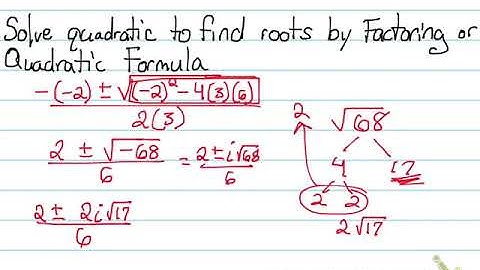 Solve quadratic to find roots by Factoring or
Quadratic Formula
-(-2) ± √(-2)² - 4(3)(6)
2(3)
2 ± √-68 = 2 ± i√68
6 6
2 ± 2i√17
6
2 √68
4 17
2 2
2√17